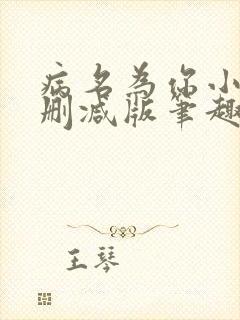 病名为你小
删减版笔趣
王琴